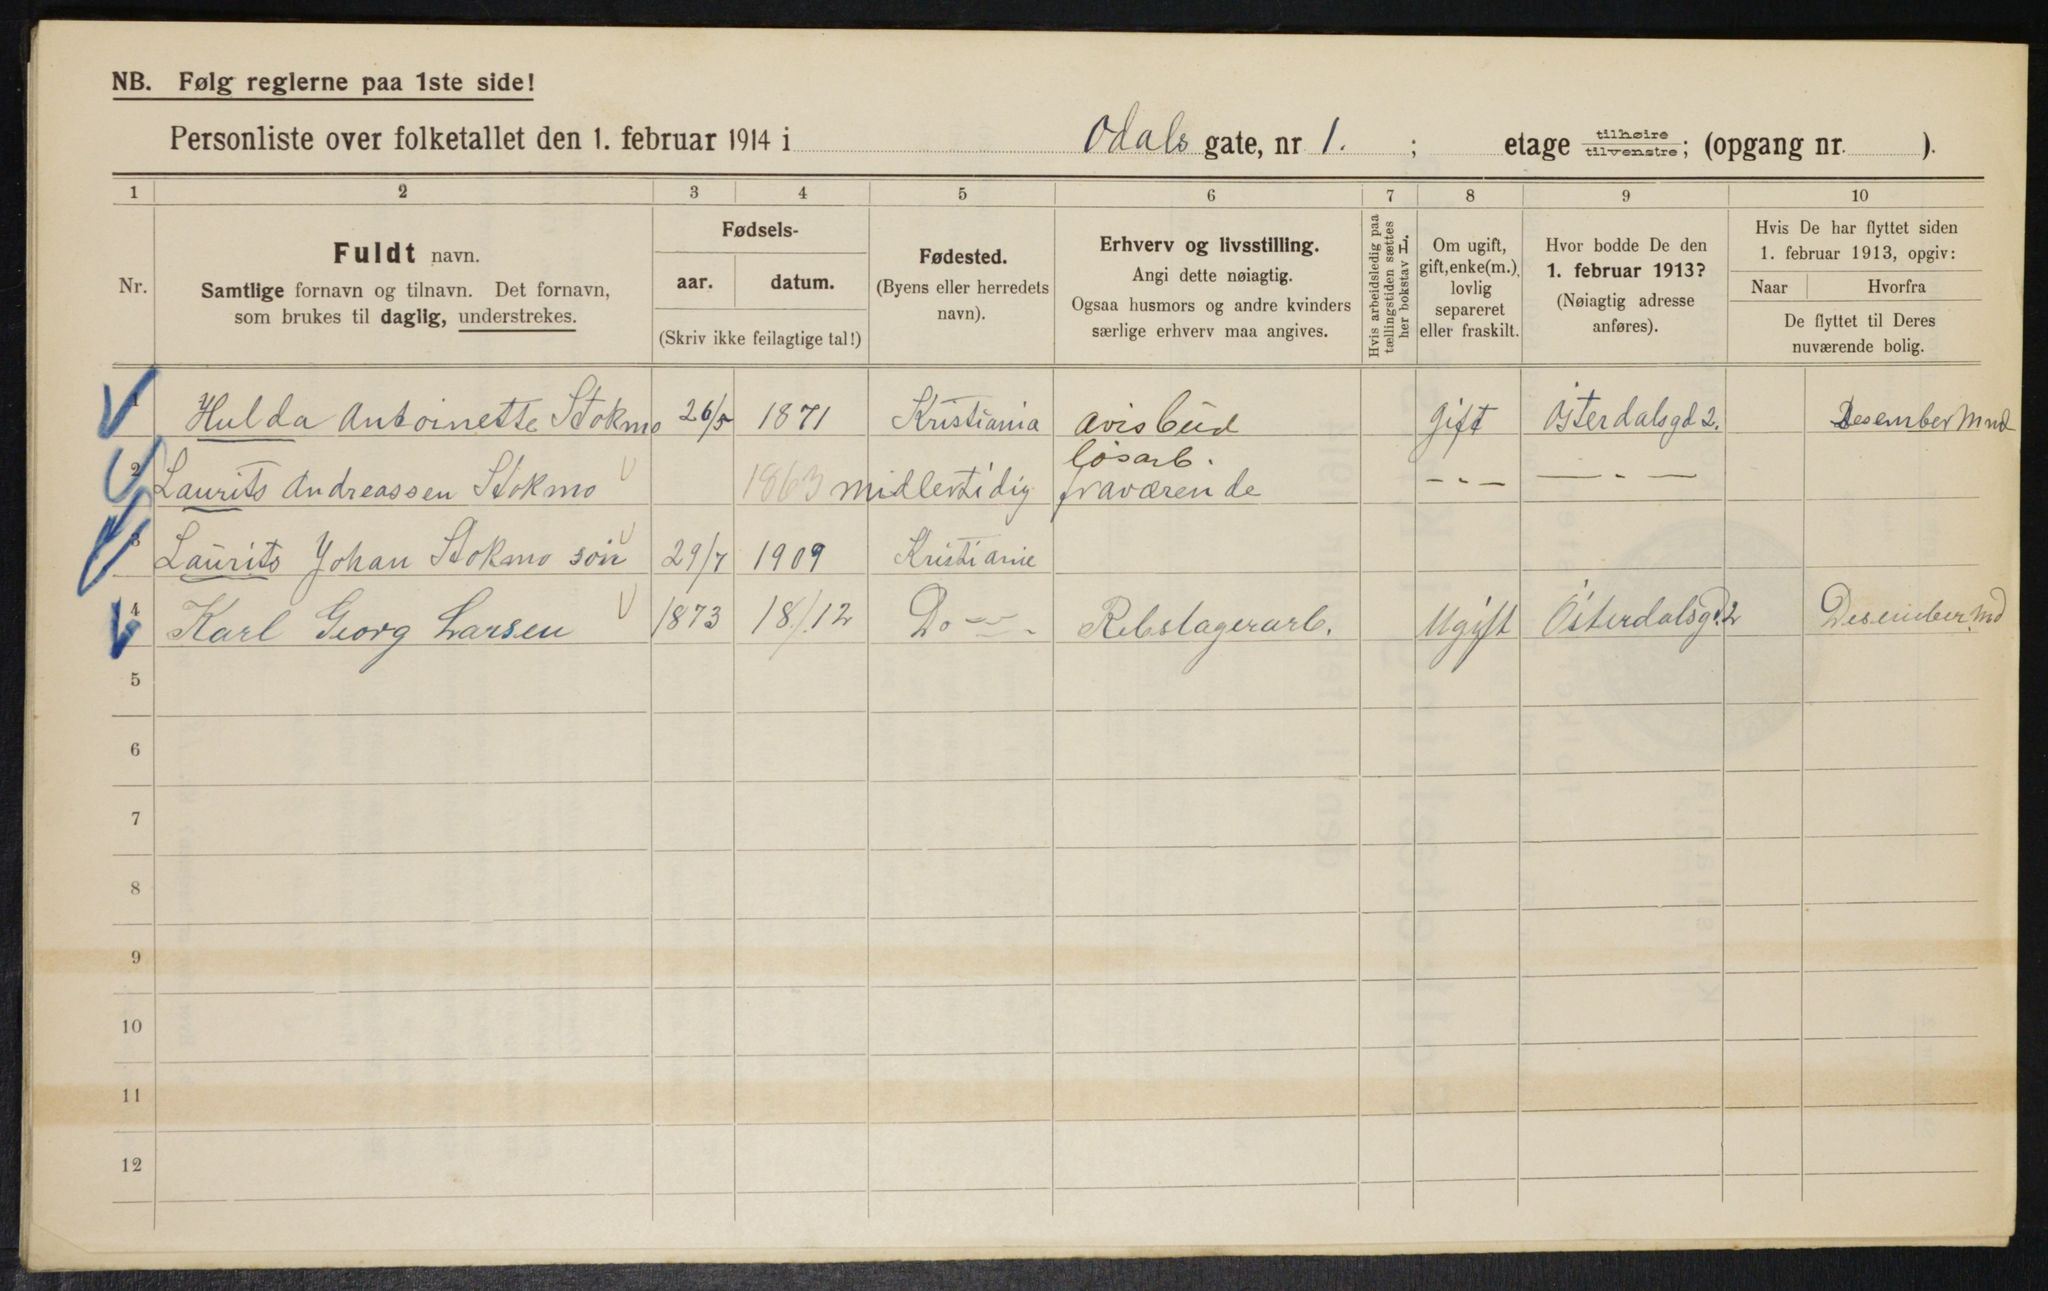 NB. Følg reglerne paa 1ste side!
Personliste over folketallet den 1. februar 1914 i Odals gate, nr 1. ; etage tilhøire/tilvenstre; (opgang nr. ).
1 2 3 4 5 6 7 8 9 10
Nr.
Fuldt navn.
Samtlige fornavn og tilnavn. Det fornavn,
som brukes til daglig, understrekes.
Fødsels-
aar. datum.
(Skriv ikke feilagtige tal!)
Fødested.
(Byens eller herredets
navn).
Erhverv og livsstilling.
Angi dette nøiagtig.
Ogsaa husmors og andre kvinders
særlige erhverv maa angives.
Hvis arbeidsledig paa
tællingstiden sættes
her bokstav L.
Om ugift,
gift, enke(m.),
lovlig
separeret
eller fraskilt.
Hvor bodde De den
1. februar 1913?
(Nøiagtig adresse
anføres).
Hvis De har flyttet siden
1. februar 1913, opgiv:
Naar Hvorfra
De flyttet til Deres
nuværende bolig.
1 Hulda Antoinette Stokmo 26/5 1871 Kristiania Avisbud Gift Østerdalsgd 2. Desember Mnd
løsarb.
2 Laurits Andreassen Stokmo 1863 midlertidig fraværende — " — — " —
3 Laurits Johan Stokmo søn 29/7 1909 Kristianie
4 Karl Georg Larsen 1873 18/12 Do — " — Rebslagerarb. Ugift Østerdalsgd. 2 Desember Md
5
6
7
8
9
10
11
12